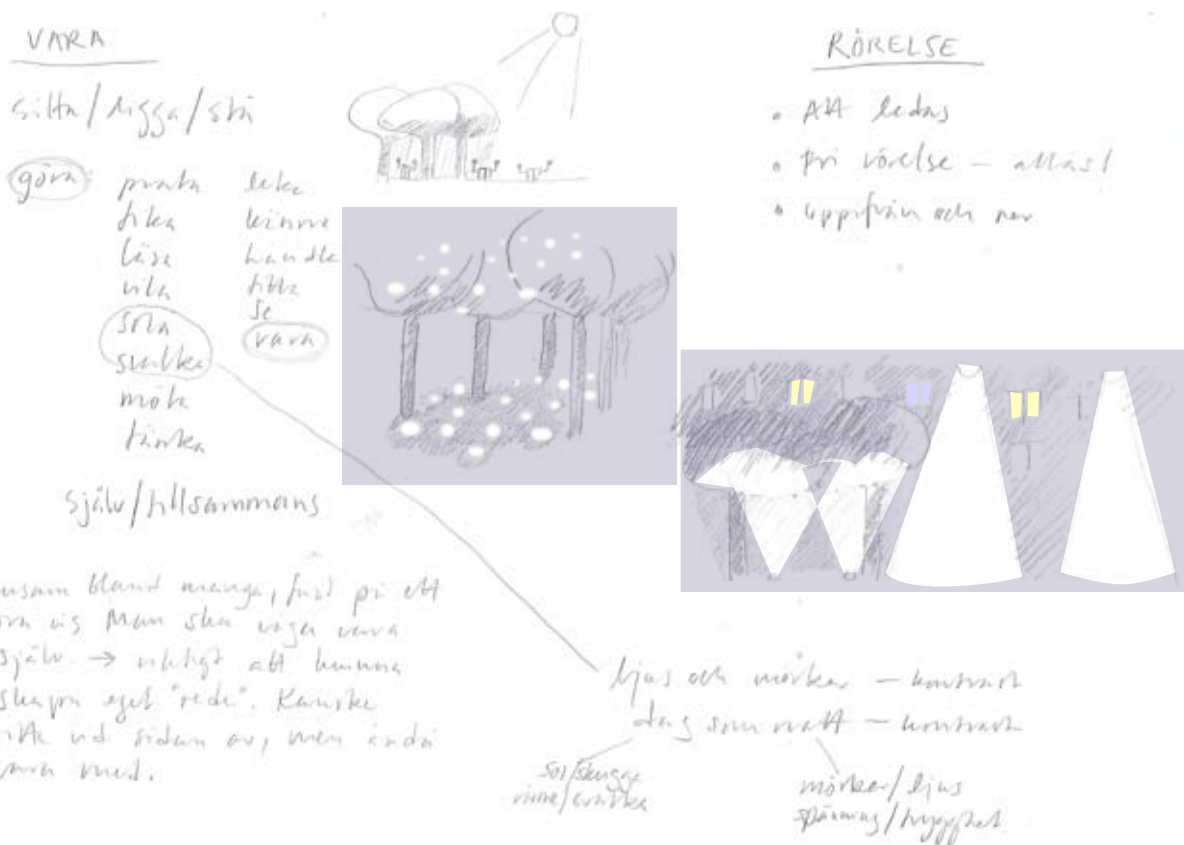 VARA
sitta/ligga/stå
göra: prata leka
fika känna
läsa handla
vila titta
sola se
svalka vara
möta
tänka
själv/tillsammans
bland många, på ett
vis Man ska våga vara
själv → viktigt att kunna
skapa eget "rede". Kanske
vid sidan av, men ändå
vara med.
RÖRELSE
• Att ledas
• Fri rörelse – altlås!
• uppifrån och ner
ljus och mörker – kontrast
dag som natt – kontrast
sol/skugga
värme/svalka
mörker/ljus
spänning/trygghet